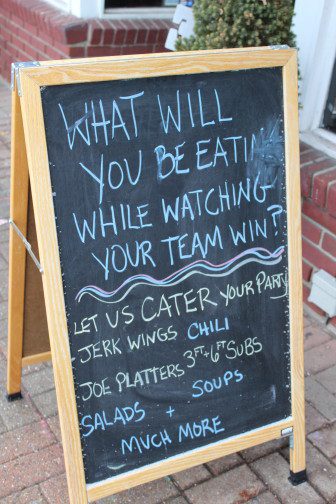 WHAT WILL
YOU BE EATIN
WHILE WATCHING
YOUR TEAM WIN?
LET US CATER YOUR PARTY
JERK WINGS CHILI
JOE PLATTERS 3FT + 6FT SUBS
SALADS + SOUPS
MUCH MORE